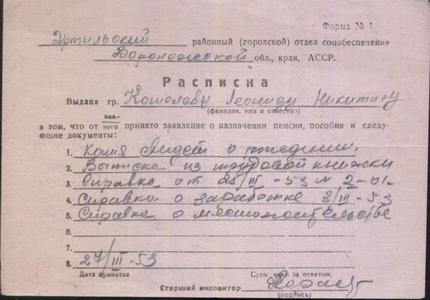 Форма № 1
Эртильский районный (городской) отдел соцобеспечения
Воронежской обл., края, АССР.
Расписка
Выдана гр. Леониду Никитичу
(фамилия, имя и отчество)
в том, что от него принято заявление о назначении пенсии, пособия и следу-
ющие документы:
1. Копия свидет. о рождении,
2. Выписка из трудовой книжки
3. Справка от 25/III-53 № 2-01.
4. Справка о заработке /III-53
5. Справка о местожительстве
6.
7.
8. 27/III-53
Дата принятия Срок за ответом,
Старший инспектор
(подпись)